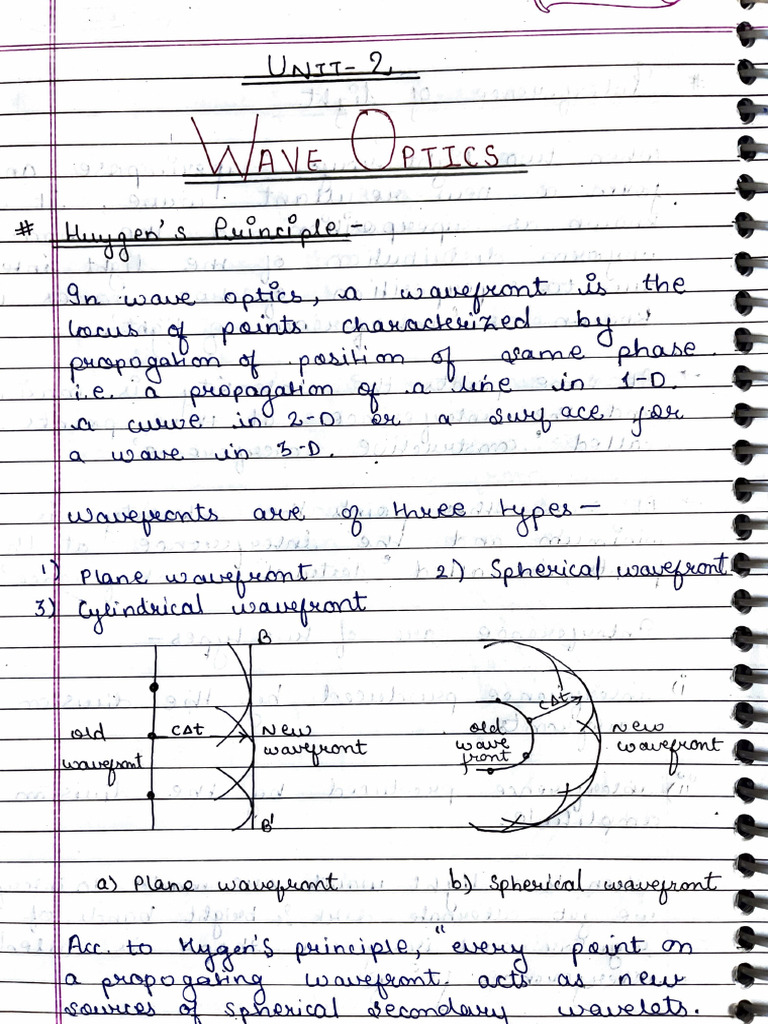 UNIT-2
WAVE OPTICS
# Huygen's Principle -
In wave optics, a wavefront is the
locus of points characterized by
propogation of position of same phase
i.e. a propagation of a line in 1-D.
a curve in 2-D or a surface for
a wave in 3-D.
Wavefronts are of three types -
1) Plane wavefront 2) Spherical wavefront
3) Cylindrical wavefront
B
old wavefront
cΔt
New wavefront
B'
old wave front
cΔt
new wavefront
a) Plane wavefront b) Spherical wavefront
Acc. to Hygen's principle, "every point on
a propogating wavefront acts as new
sources of spherical secondary wavelets.